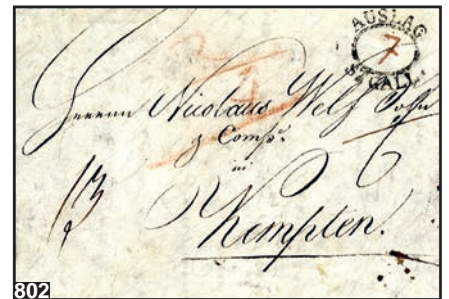 AUSLAG
7
ST GALL
Herrn Nicolaus Welf Sohn
& Comp.
in
Kempten.
802